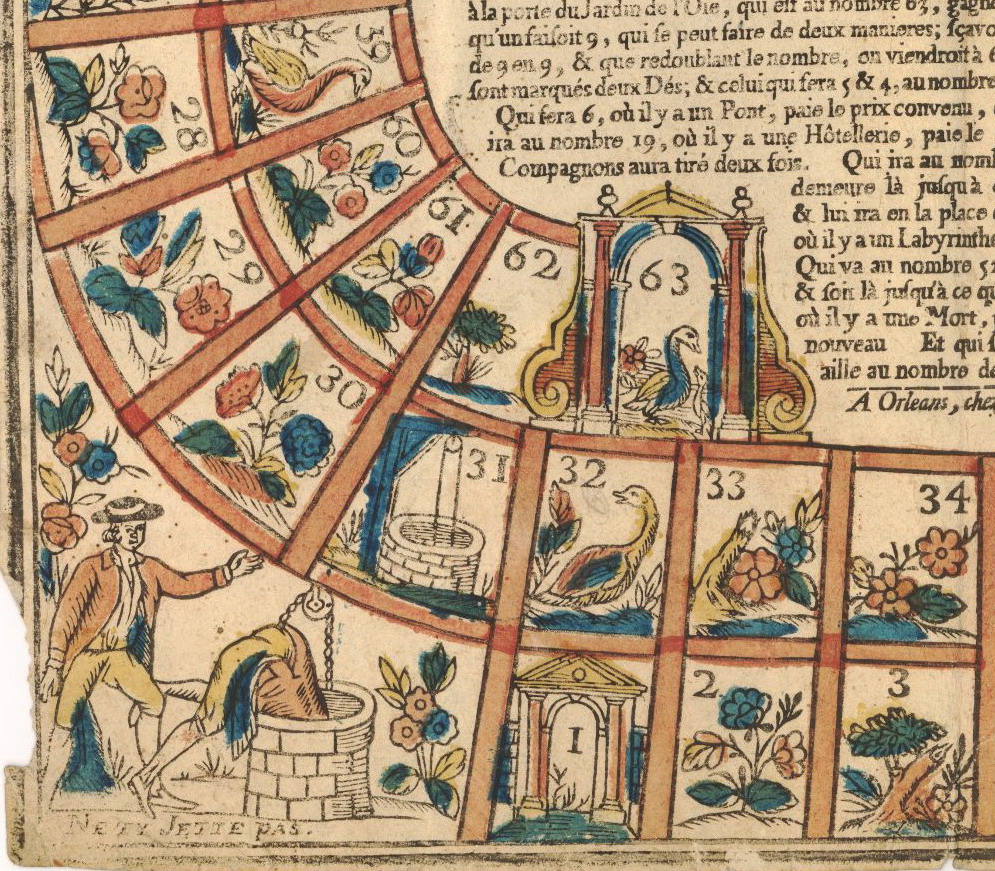 à la porte du Jardin de l'Oie, qui est au nombre 63, gagne
qu'un faisoit 9, qui se peut faire de deux manieres; sçavo
de 9 en 9, & que redoublant le nombre, on viendroit à 6
sont marqués deux Dés; & celui qui fera 5 & 4, au nombre
Qui fera 6, où il y a un Pont, paie le prix convenu,
ira au nombre 19, où il y a une Hôtellerie, paie le
Compagnons aura tiré deux fois. Qui ira au nomb
demeure là jusqu'à
& lui ira en la place
où il y a un Labyrinthe
Qui va au nombre 52
& soit là jusqu'à ce qu
où il y a une Mort,
nouveau Et qui
aille au nombre de
A Orleans, chez
59
28
60
29
61
62
63
30
31
32
33
34
1
2
3
NE TY JETTE PAS.